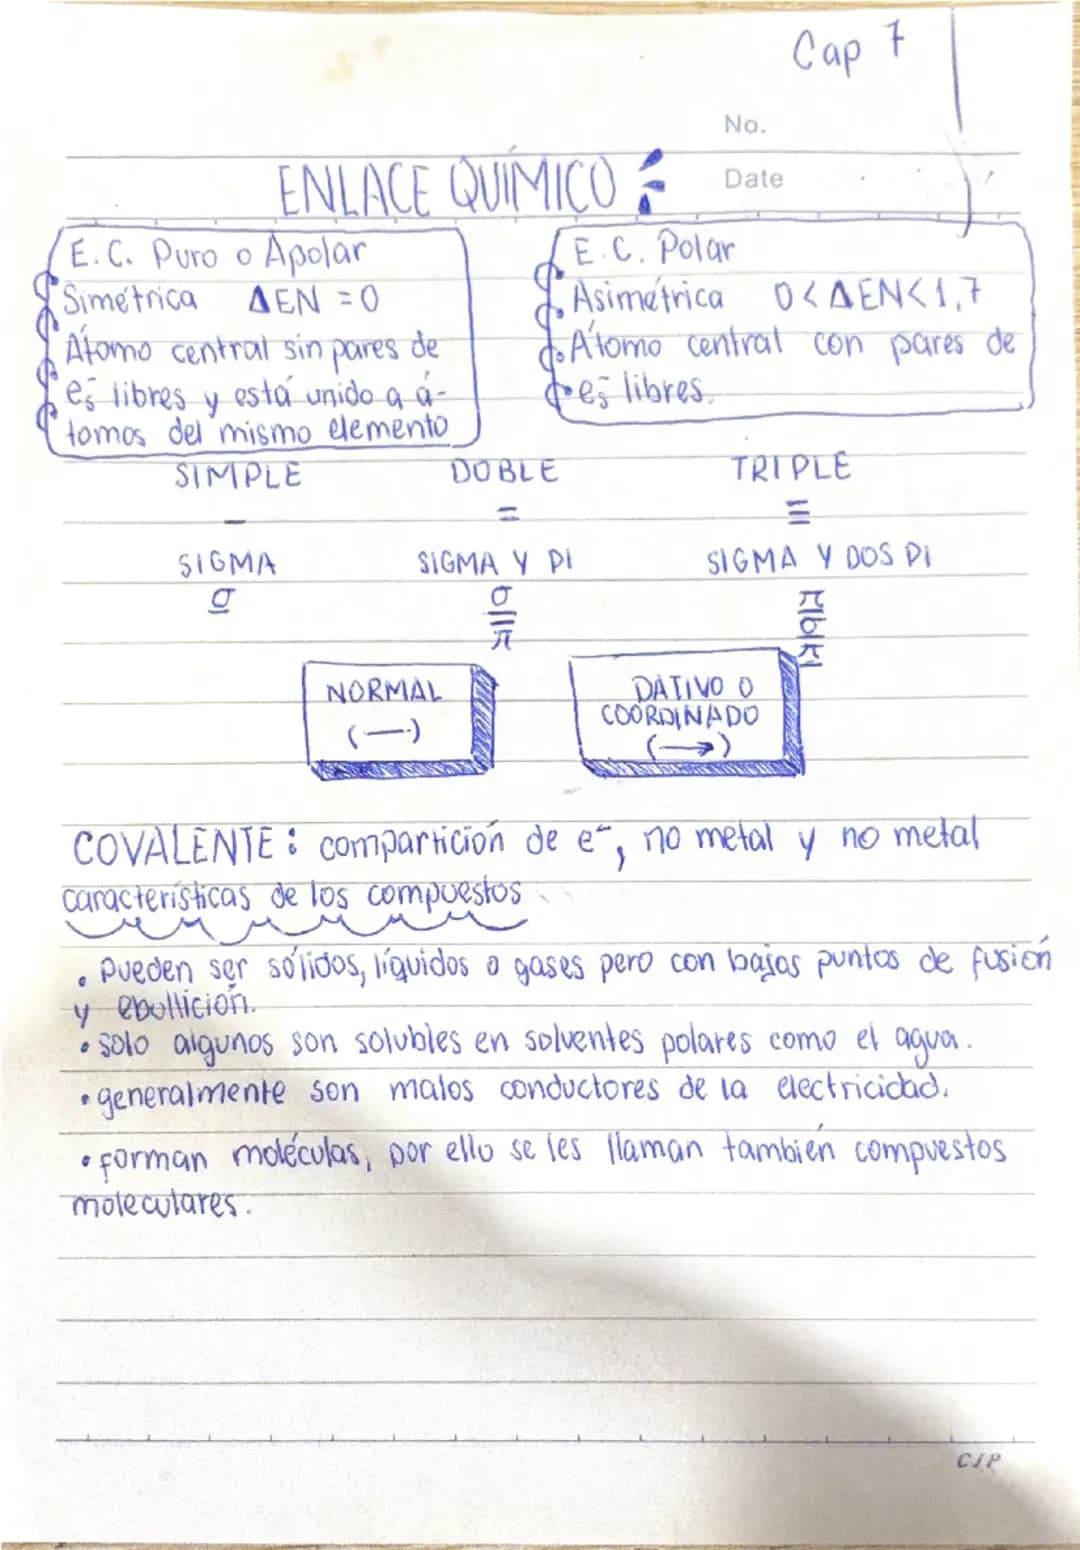 Cap 7
No.
ENLACE QUÍMICO
Date
E.C. Puro o Apolar
Simétrica ΔEN = 0
Átomo central sin pares de
e⁻s libres y está unido a á-
tomos del mismo elemento
E.C. Polar
Asimétrica 0<ΔEN<1,7
Átomo central con pares de
e⁻s libres.
SIMPLE DOBLE TRIPLE
— = ≡
SIGMA SIGMA Y PI SIGMA Y DOS PI
σ σ π π σ π
NORMAL
(—)
DATIVO O
COORDINADO
(→)
COVALENTE: compartición de e⁻, no metal y no metal
características de los compuestos
• Pueden ser sólidos, líquidos o gases pero con bajos puntos de fusión
y ebullición.
• solo algunos son solubles en solventes polares como el agua.
• generalmente son malos conductores de la electricidad.
• forman moléculas, por ello se les llaman también compuestos
moleculares.
CJP